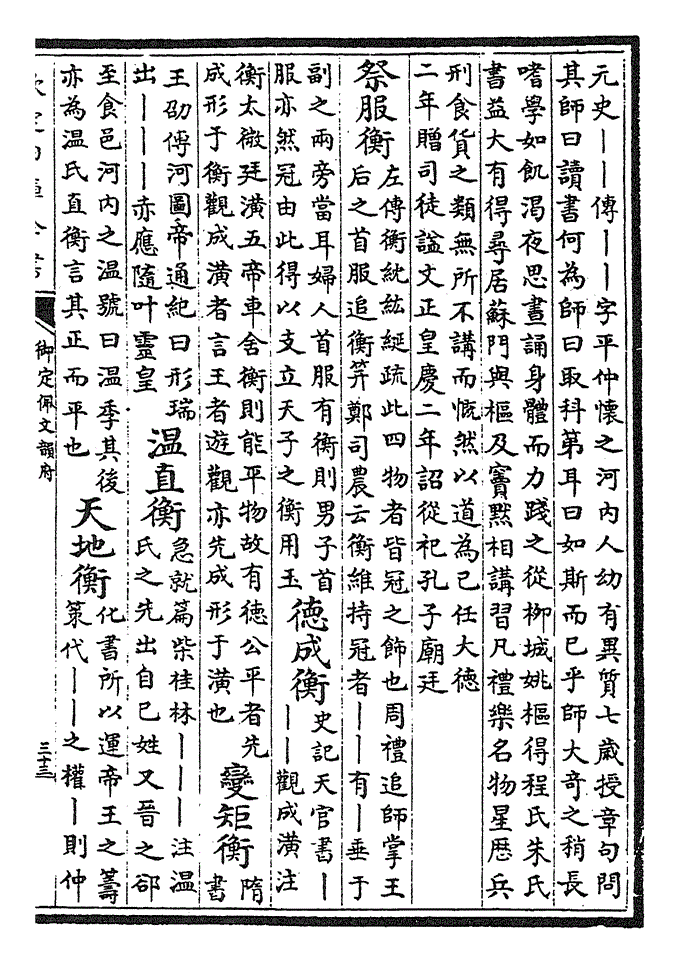 元史｜｜傳｜｜字平仲懷之河内人幼有異質七歲授章句問
其師曰讀書何為師曰取科第耳曰如斯而已乎師大奇之稍長
嗜學如飢渴夜思晝誦身體而力踐之從柳城姚樞得程氏朱氏
書益大有得尋居蘇門與樞及竇默相講習凡禮樂名物星厯兵
刑食貨之類無所不講而慨然以道為己任大德
二年贈司徒諡文正皇慶二年詔從祀孔子廟廷
祭服衡
左傳衡紞紘綖疏此四物者皆冠之飾也周禮追師掌王
后之首服追衡笄鄭司農云衡維持冠者｜｜有｜垂于
副之兩旁當耳婦人首服有衡則男子首
服亦然冠由此得以支立天子之衡用玉
德成衡
史記天官書｜
｜｜觀成潢注
衡太微廷潢五帝車舍衡則能平物故有德公平者先
成形于衡觀成潢者言王者遊觀亦先成形于潢也
變矩衡
隋
書
王劭傳河圖帝通紀曰形瑞
出｜｜｜赤應隨叶靈皇
温直衡
急就篇柴桂林｜｜｜注温
氏之先出自己姓又晉之郤
至食邑河内之温號曰温季其後
亦為温氏直衡言其正而平也
天地衡
化書所以運帝王之籌
策代｜｜之權｜則仲
御定佩文韻府
三十三